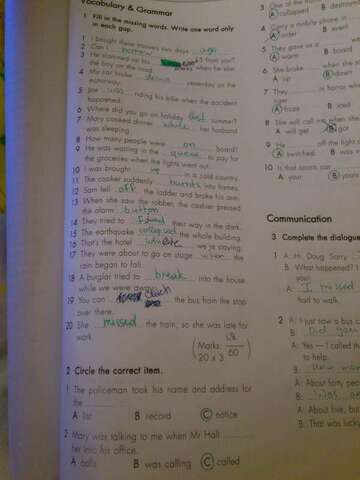 Vocabulary & Grammar
1 Fill in the missing words. Write one word only
in each gap.
1 I bought these trousers two days ago
2 Can I borrow £5 from you?
3 He slammed on his brakes when he saw
the boy on the road.
4 My car broke down yesterday on the
motorway.
5 Joe was riding his bike when the accident
happened.
6 Where did you go on holiday last summer?
7 Mary cooked dinner while her husband
was sleeping.
8 How many people were on board?
9 He was waiting in the queue to pay for
the groceries when the lights went out.
10 I was brought up in a cold country.
11 The cooker suddenly bursts into frames.
12 Sam fell off the ladder and broke his arm.
13 When she saw the robber, the cashier pressed
the alarm button
14 They tried to find their way in the dark.
15 The earthquake collapsed the whole building.
16 That's the hotel where we're staying.
17 They were about to go on stage when the
rain began to fall.
18 A burglar tried to break into the house
while we were away.
19 You can the bus from the stop
over there.
20 She missed the train, so she was late for
work.
(Marks: 60)
20 x 3
2 Circle the correct item.
1 The policeman took his name and address for
the
A list B record C notice
2 Mary was talking to me when Mr Hall
her into his office.
A calls B was calling C called
3 One of the
A collapsed B destroy
4 Carry a mobile phone in
A order B event
5 They gave us a
A warn B
6 She broke when she
A up B down
7 They in horror when
A froze B iced
8 She will call me when she
A will get B got
9 He off the light
A switched B was
10 Is that sports car
A your B yours
Communication
3 Complete the dialogue
1 A: Hi, Doug. Sorry
B: What happened?
you!
A: I missed
had to walk.
2 A: I just saw a bus
B: Did you
A: Yes – I called the
to help.
B: How many
A: About forty peo
B: Was an
A: About five, bu
B: That was lucky